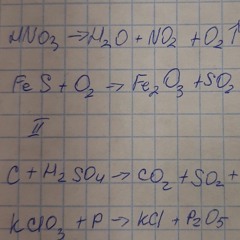 HNO₃ → H₂O + NO₂ + O₂↑
FeS + O₂ → Fe₂O₃ + SO₂
II
C + H₂SO₄ → CO₂ + SO₂ +
KClO₃ + P → KCl + P₂O₅